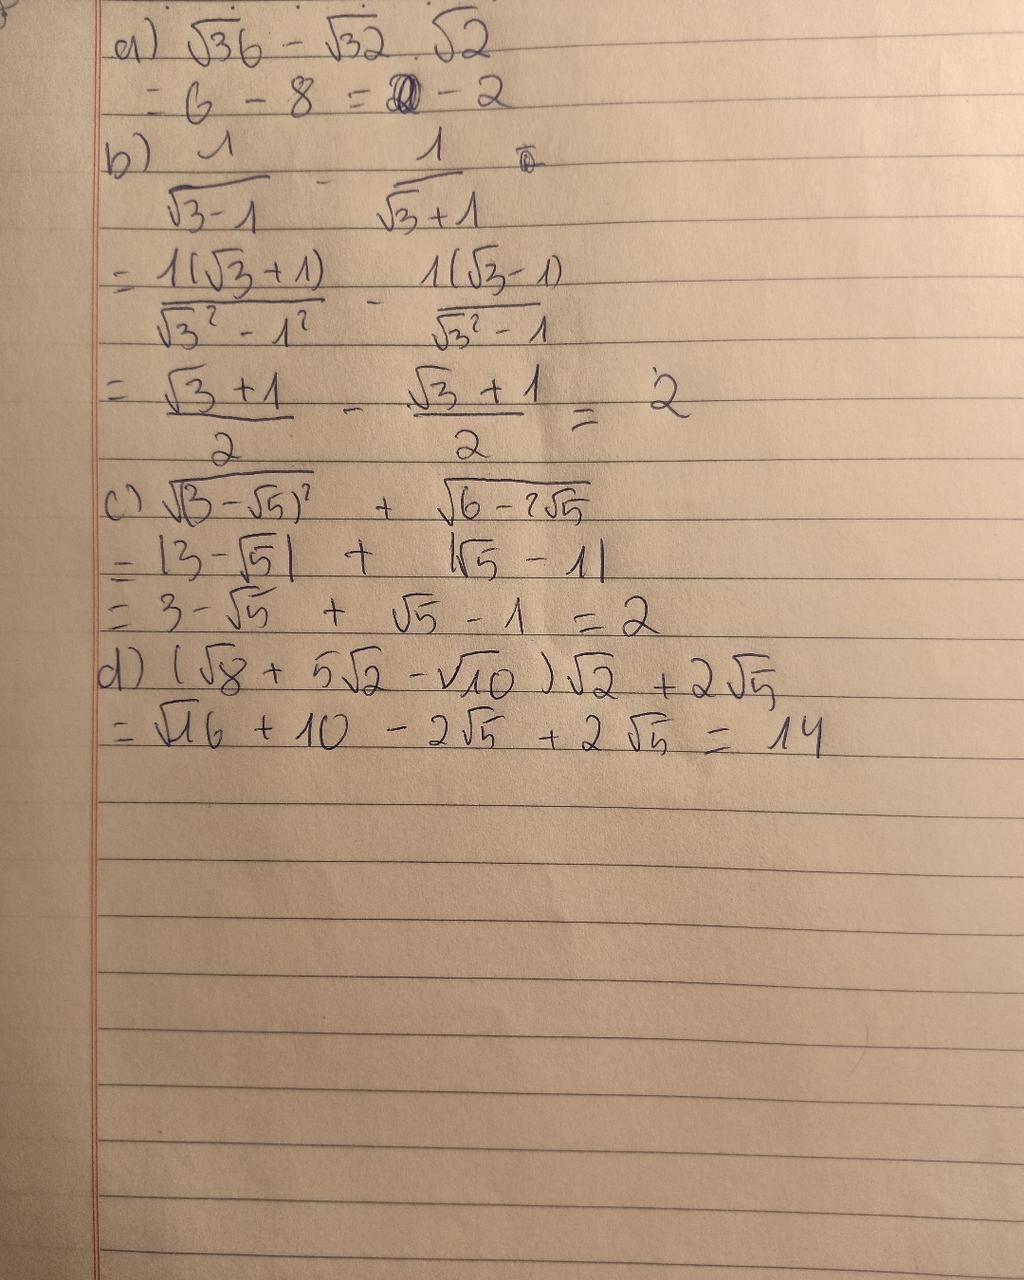 a) √36 - √32 . √2
= 6 - 8 = - 2
b) 1/(√3-1) - 1/(√3+1)
= 1(√3+1)/(√3² - 1²) - 1(√3-1)/(√3² - 1)
= (√3+1)/2 - (√3+1)/2 = 2
c) √(3-√5)² + √6-2√5
= |3-√5| + |√5 - 1|
= 3-√5 + √5 - 1 = 2
d) (√8 + 5√2 - √10)√2 + 2√5
= √16 + 10 - 2√5 + 2√5 = 14